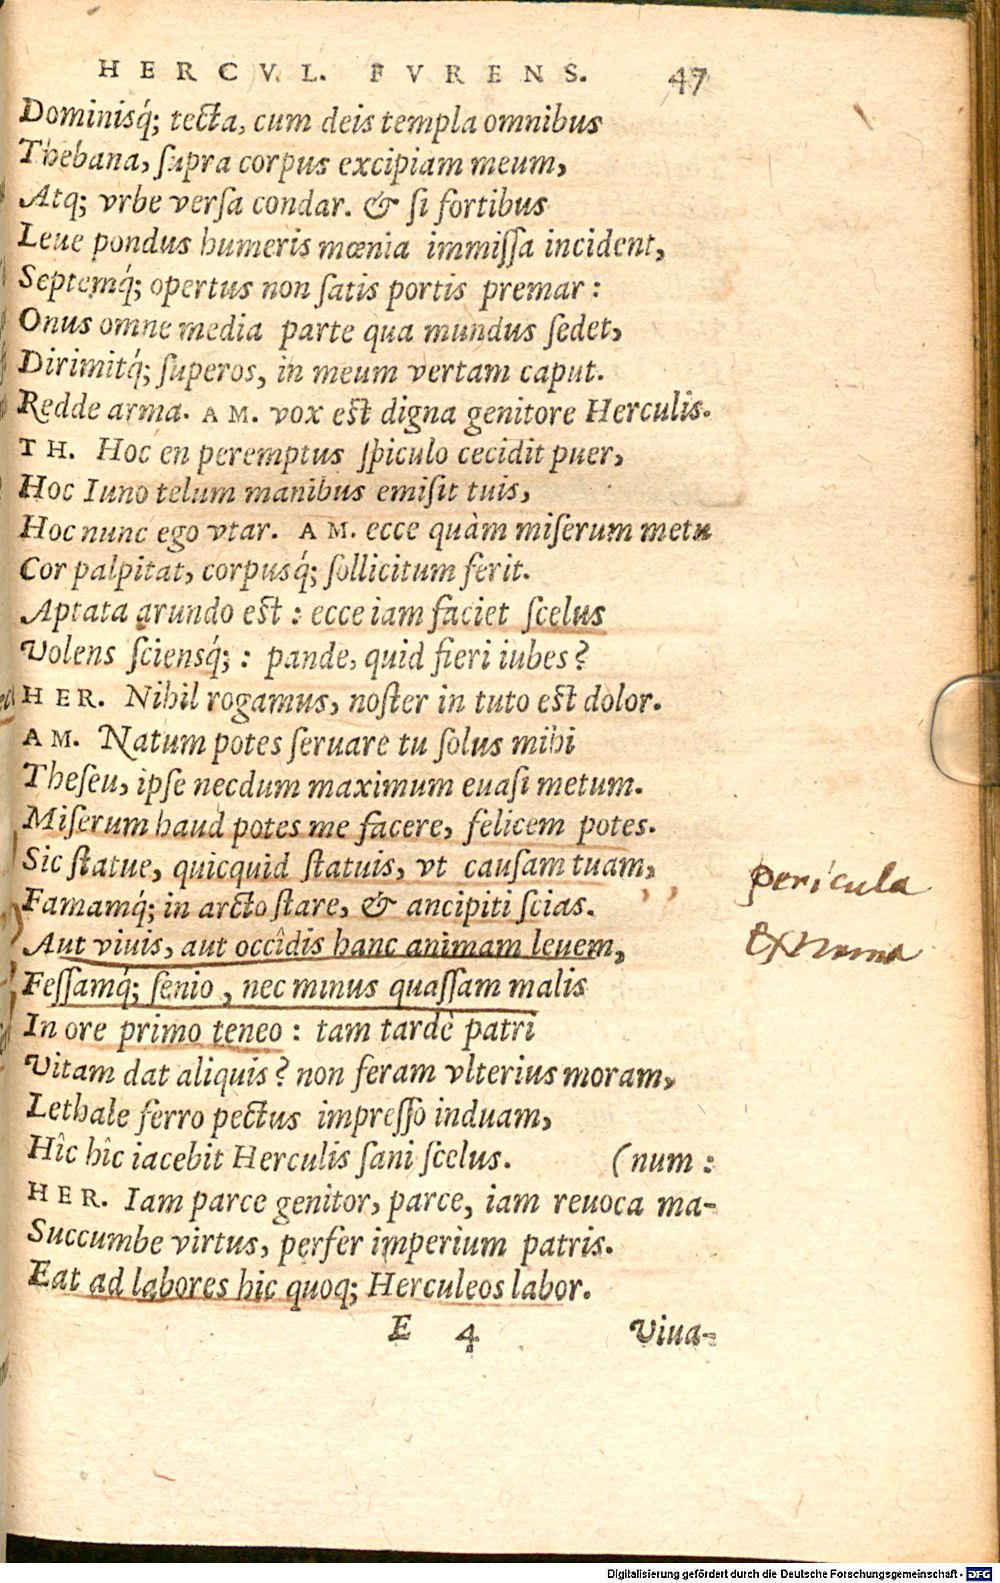 HERCVL. FVRENS. 47
Dominisq́; tecta, cum deis templa omnibus
Thebana, ſupra corpus excipiam meum,
Atq; vrbe verſa condar. & ſi fortibus
Leue pondus humeris mœnia immiſſa incident,
Septemq́; opertus non ſatis portis premar:
Onus omne media parte qua mundus ſedet,
Dirimitq́; ſuperos, in meum vertam caput.
Redde arma. AM. vox eſt digna genitore Herculis.
TH. Hoc en peremptus ſpiculo cecidit puer,
Hoc Iuno telum manibus emiſit tuis,
Hoc nunc ego vtar. AM. ecce quàm miſerum metu
Cor palpitat, corpusq́; ſollicitum ferit.
Aptata arundo eſt: ecce iam faciet ſcelus
Volens ſciensq́;: pande, quid fieri iubes?
HER. Nihil rogamus, noſter in tuto eſt dolor.
AM. Natum potes ſeruare tu ſolus mihi
Theſeu, ipſe necdum maximum euaſi metum.
Miſerum haud potes me facere, felicem potes.
Sic ſtatue, quicquid ſtatuis, vt cauſam tuam,
Famamq́; in arcto ſtare, & ancipiti ſcias.
Aut viuis, aut occîdis hanc animam leuem,
Feſſamq́; ſenio, nec minus quaſſam malis
In ore primo teneo: tam tardè patri
Vitam dat aliquis? non feram vlterius moram,
Lethale ferro pectus impreſſo induam,
Hîc hîc iacebit Herculis ſani ſcelus. (num:
HER. Iam parce genitor, parce, iam reuoca ma-
Succumbe virtus, perfer imperium patris.
Eat ad labores hic quoq; Herculeos labor.
E 4 Viua-
pericula
Extrema
Digitalisierung gefördert durch die Deutsche Forschungsgemeinschaft - DFG